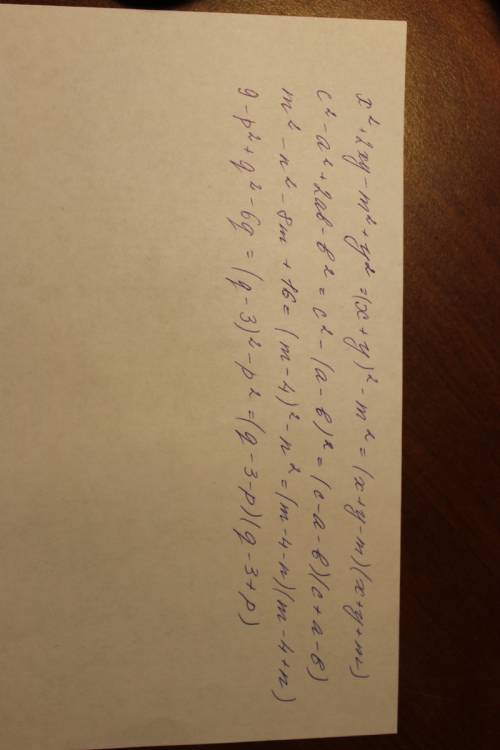 x²+2xy-m²+y²=(x+y)²-m²=(x+y-m)(x+y+m)
c²-a²+2ab-b²=c²-(a-b)²=(c-a-b)(c+a-b)
m²-n²-8m+16=(m-4)²-n²=(m-4-n)(m-4+n)
9-p²+q²-6q=(q-3)²-p²=(q-3-p)(q-3+p)